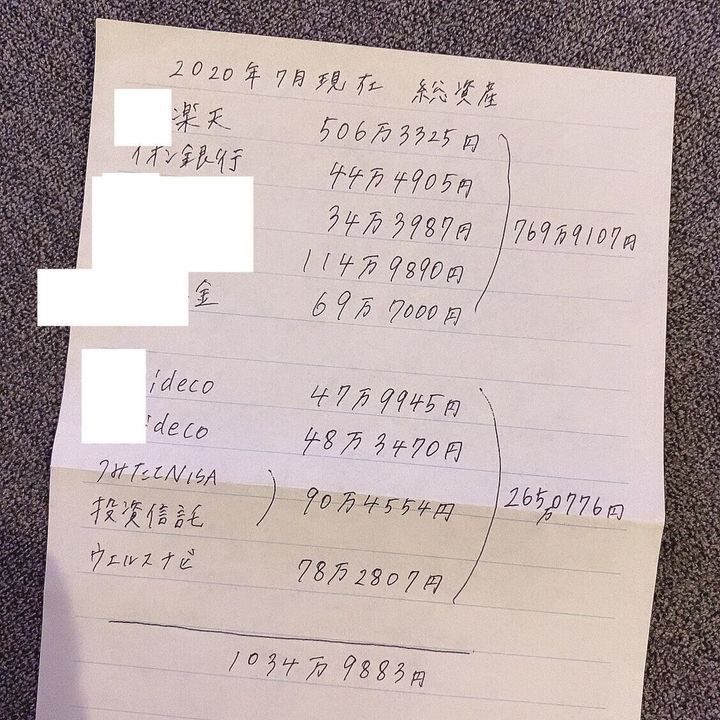 2020年7月現在 総資産
楽天 506万3325円
イオン銀行 44万4905円
34万3987円
769万9107円
114万9890円
金 69万7000円
ideco 47万9945円
ideco 48万3470円
つみたてNISA
投資信託 90万4554円
265万0776円
ウェルスナビ 78万2807円
1034万9883円